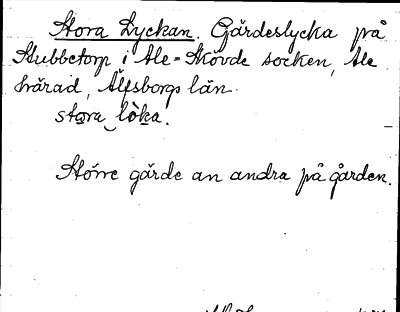 Stora Lyckan. Gärdeslycka på
Stubbetorp i Ale-Skövde socken, Ale
härad, Älfsborgs län.
stora löka.
Större gärde än andra på gården.